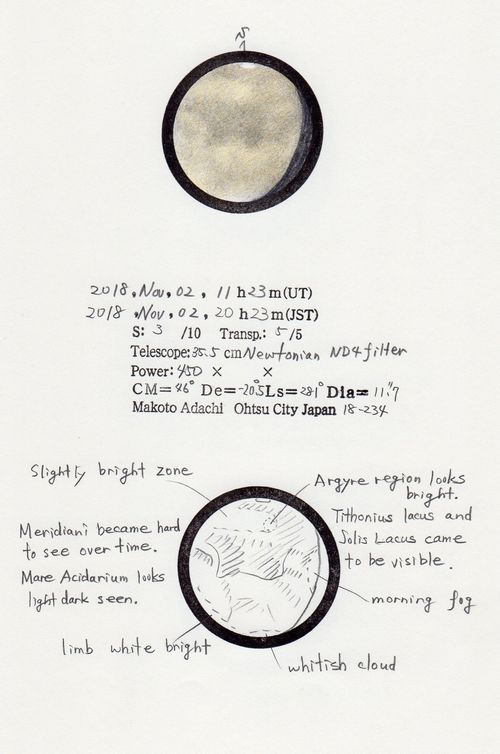 S
2018, Nov, 02, 11 h 23 m (UT)
2018, Nov, 02, 20 h 23 m (JST)
S: 3 /10 Transp.: 5 /5
Telescope: 35.5 cm Newtonian ND4 filter
Power: 450 × ×
CM= 46° De= -20.5° Ls= 281° Dia= 11."7
Makoto Adachi Ohtsu City Japan 18-234
Slightly bright zone
Argyre region looks
bright.
Meridiani became hard
to see over time.
Tithonius lacus and
Solis Lacus came
to be visible.
Mare Acidarium looks
light dark seen.
morning fog
limb white bright
whitish cloud